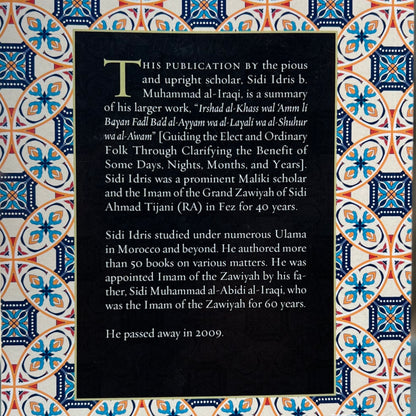 THIS PUBLICATION BY the pious
and upright scholar, Sidi Idris b.
Muhammad al-Iraqi, is a summary
of his larger work, "Irshad al-Khass wal 'Amm li
Bayan Fadl Ba'd al-Ayyam wa al-Layali wa al-Shuhur
wa al-Awam" [Guiding the Elect and Ordinary
Folk Through Clarifying the Benefit of
Some Days, Nights, Months, and Years].
Sidi Idris was a prominent Maliki scholar
and the Imam of the Grand Zawiyah of Sidi
Ahmad Tijani (RA) in Fez for 40 years.
Sidi Idris studied under numerous Ulama
in Morocco and beyond. He authored more
than 50 books on various matters. He was
appointed Imam of the Zawiyah by his fa-
ther, Sidi Muhammad al-Abidi al-Iraqi, who
was the Imam of the Zawiyah for 60 years.
He passed away in 2009.